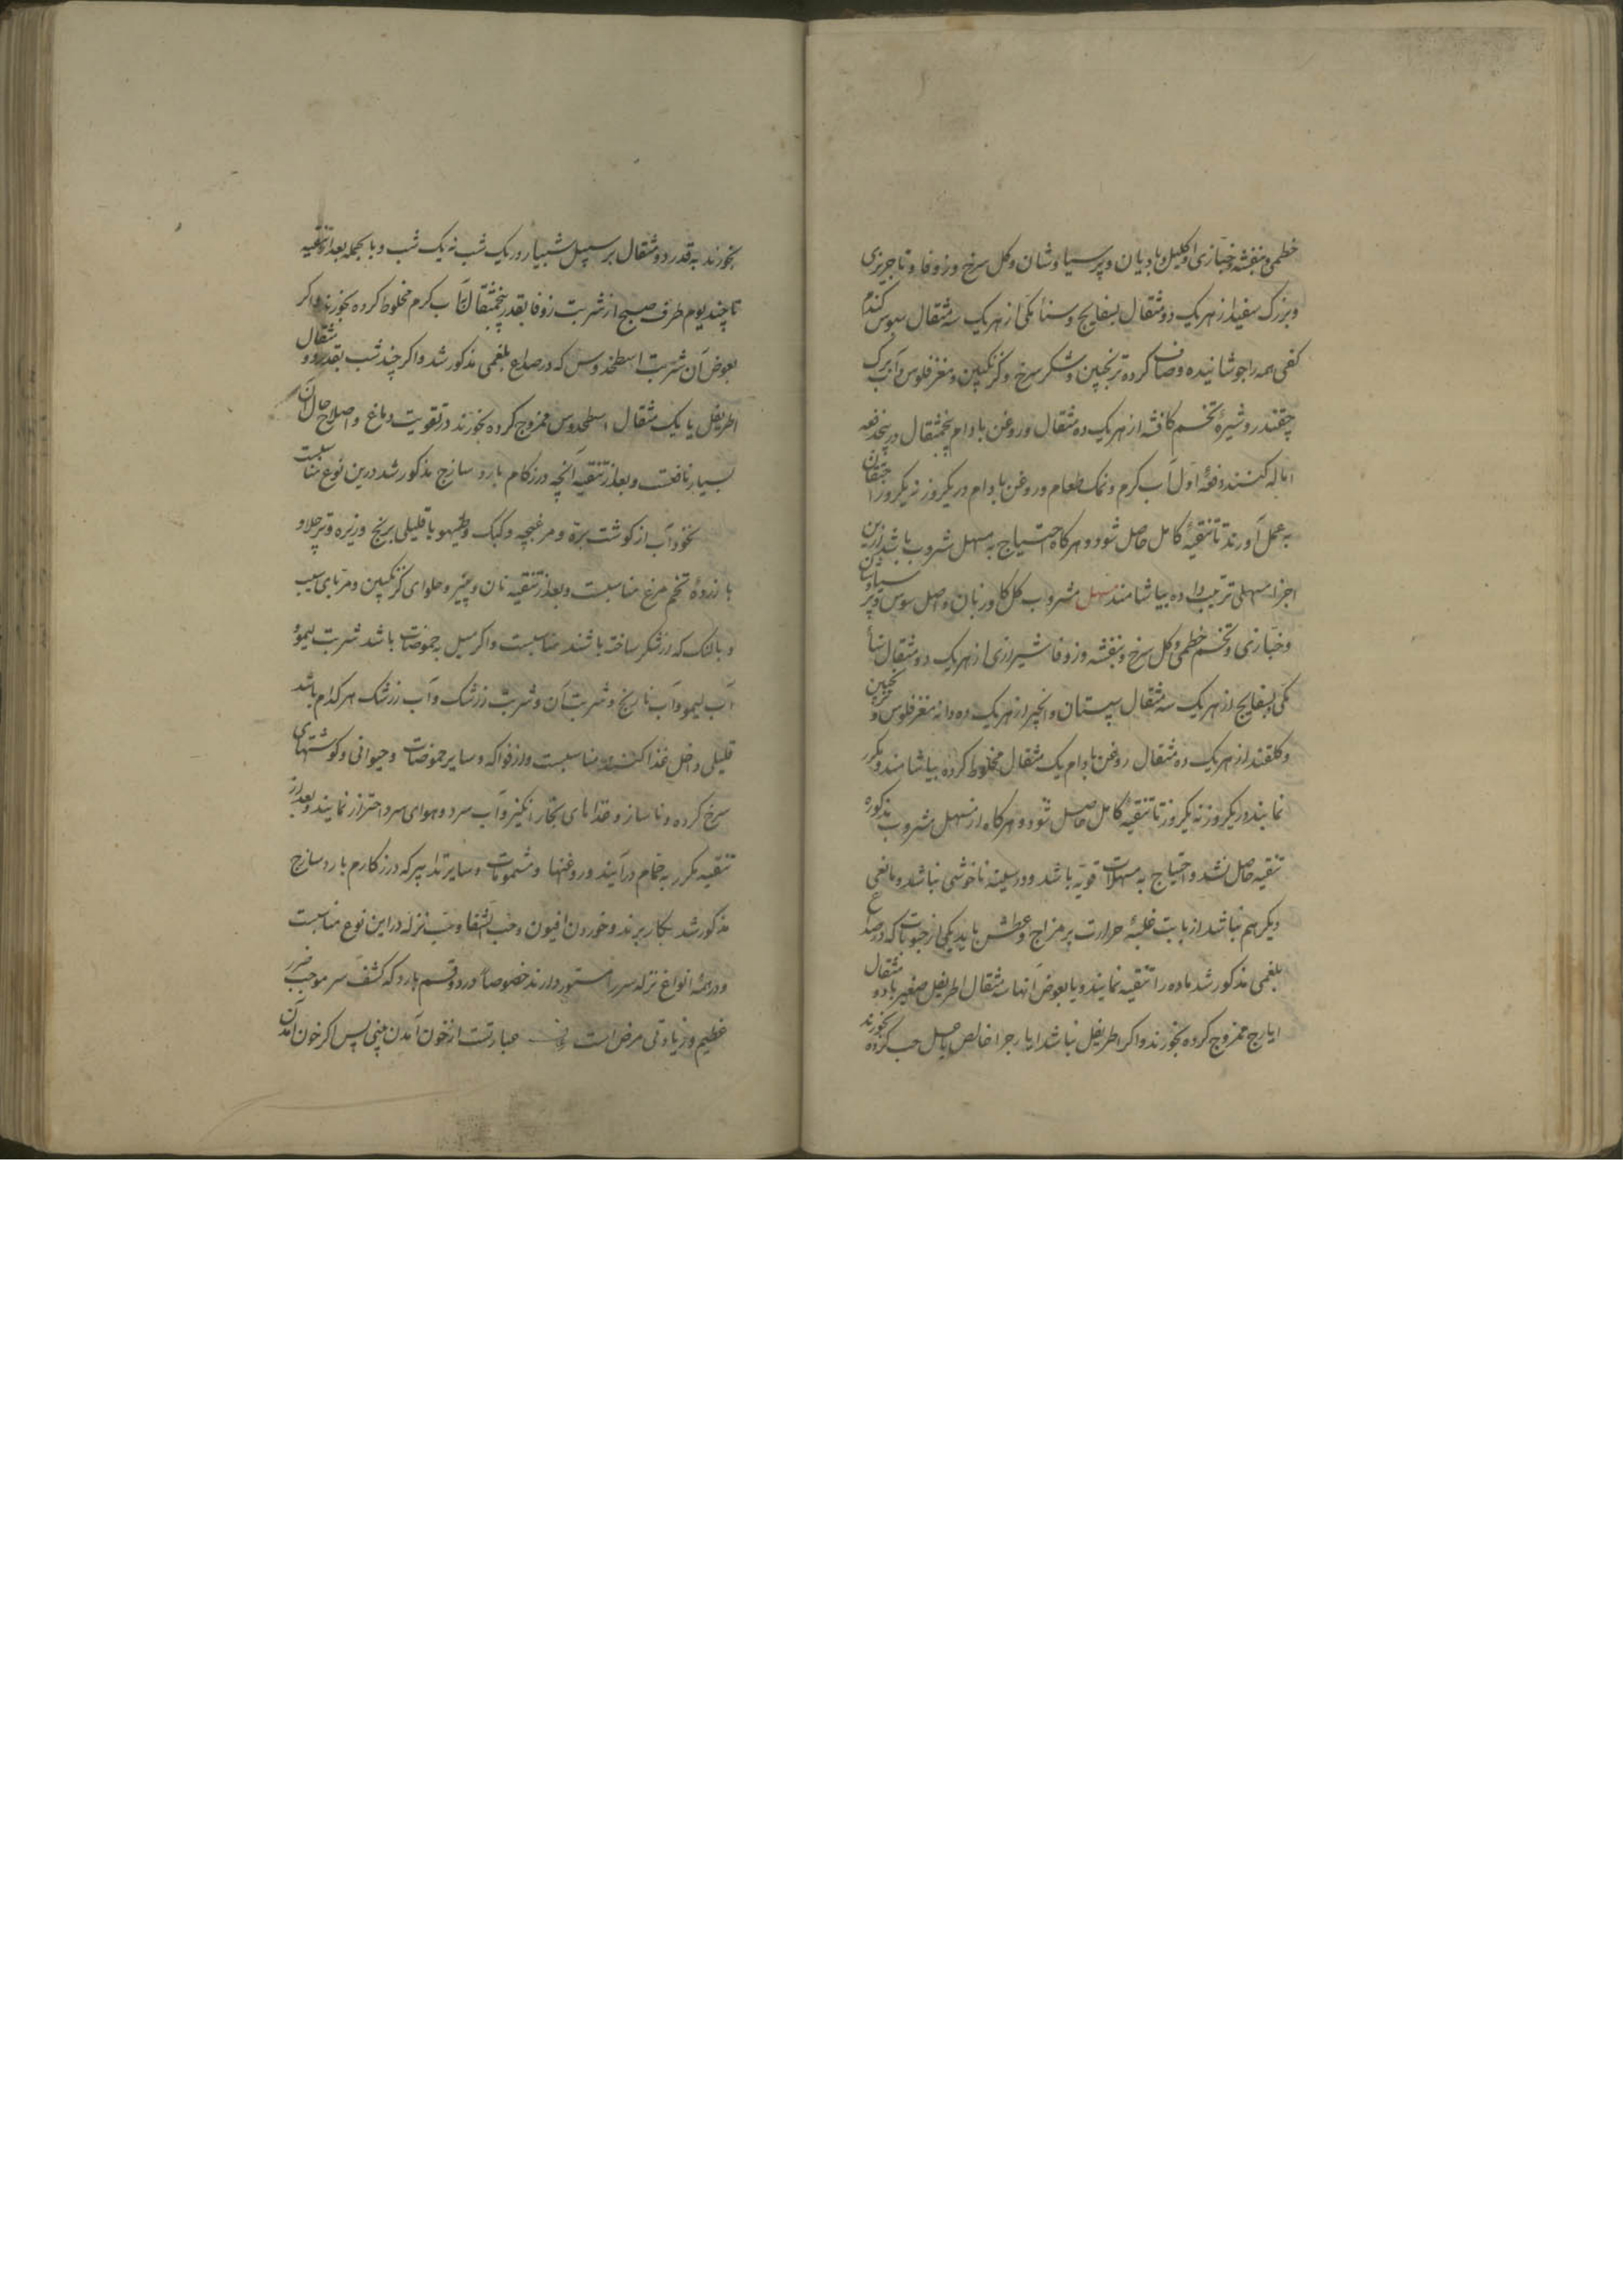 خطمی و بنفشه و خبازی و اکلیل و بادیان و پرسیاوشان و کل سرخ و زوفا و تاجریزی
و بزرک سفید از هریک دو مثقال بسفایج و سنا مکی از هریک سه مثقال سبوس کندم
کفی همه را جوشانیده و صاف کرده ترنجبین و شکر سرخ و کزنکبین و مغز فلوس و آب برک
چقندر و شیرهٔ تخم کافشه از هریک ده مثقال و روغن بادام پنجمثقال در پنجدفعه
اماله کنند دفعهٔ اول آب کرم و نمک طعام و روغن بادام در یکروز نه یکروز احتقان
به عمل آورند تا تنقیهٔ کامل حاصل شود و هرکاه احتیاج به مسهل مشروب باشد ازین
اجزا مسهلی ترتیب داده بیاشامند مسهل مشروب کل کاوزبان و اصل سوس و پرسیاوشان
و خبازی و تخم خطمی و کل سرخ و بنفشه و زوفا شیرازی از هریک دو مثقال سنا
مکی و بسفایج از هریک سه مثقال سپستان و انجیر از هریک ده دانه مغز فلوس و ترنجبین
و کلقند از هریک ده مثقال روغن بادام یک مثقال مخلوط کرده بیاشامند و مکرر
نمایند در یکروز نه یکروز تا تنقیهٔ کامل حاصل شود و هرکاه از مسهل مشروب مذکوره
تنقیه حاصل نشد و احتیاج به مسهلات قویه باشد و در سینه ناخوشی نباشد و مانعی
دیکر هم نباشد از بابت غلبهٔ حرارت بر مزاج و عطش باید یکی از حبوبات که در صداع
بلغمی مذکور شد ماده را تنقیه نمایند و یا بعوض آنها سه مثقال اطریفل صغیر با دو مثقال
ایارج ممزوج کرده بخورند و اکر اطریفل نباشد ایارجرا خالص یا حب کرده بخورند
بخورند به قدر دو مثقال بر سبیل شبیار در یک شب نه یک شب و بالجمله بعد از تنقیه
تا چند یوم طرف صبح از شربت زوفا بقدر پنجمثقال با آب کرم مخلوط کرده بخورند و اکر
بعوض آن شربت اسطخدوس که در صداع بلغمی مذکور شد و اکر چند شب بقدر دو مثقال
اطریفل با یک مثقال اسطخدوس ممزوج کرده بخورند در تقویت دماغ و اصلاح حال آن
بسیار نافعست و بعد از تنقیه آنچه در زکام بارد ساذج مذکور شد درین نوع مناسبست
نخوداب از کوشت بره و مرغبچه و کبک و طیهو با قلیلی برنج و زیره و تره چلاو
با زردهٔ تخم مرغ مناسبست و بعد از تنقیه نان و پنیر و حلوای کزنکبین و مربای سیب
و بالنک که از شکر ساخته باشند مناسبست و اکر میل به حموضات باشد شربت لیمو
آب لیمو و آب نارنج و شربت آن و شربت زرشک و آب زرشک هرکدام باشد
قلیلی داخل غذا کنند مناسبست و از فواکه و سایر حموضات و حیوانی و کوشتهای
سرخ کرده و ناساز و غذاهای بخار انکیز و آب سرد و هوای سرد احتراز نمایند و بعد از
تنقیه مکرر به حمام درآیند و روغنها و مشمومات و سایر تدابیر که در زکام بارد ساذج
مذکور شد بکار برند و خوردن افیون و حب الشفا و حب نزله در این نوع مناسبست
و در همهٔ انواع نزله سر را مستور دارند خصوصاً در دو قسم بارد که کشف سر موجب ضرر
عظیم و زیادتی مرض است عبارتست از خون آمدن بینی پس اکر خون آمدن